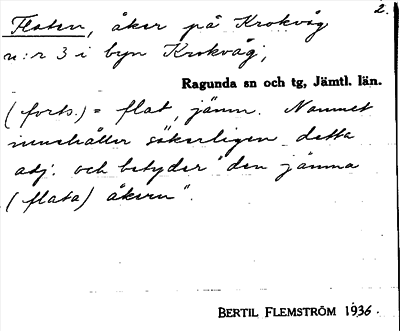 2.
Flaten, åker på Krokvåg
n:r 3 i byn Krokvåg,
Ragunda sn och tg, Jämtl. län.
(forts.) = flat, jämn. Namnet
innehåller säkerligen detta
adj. och betyder "den jämna
(flata) åkern".
BERTIL FLEMSTRÖM 1936.